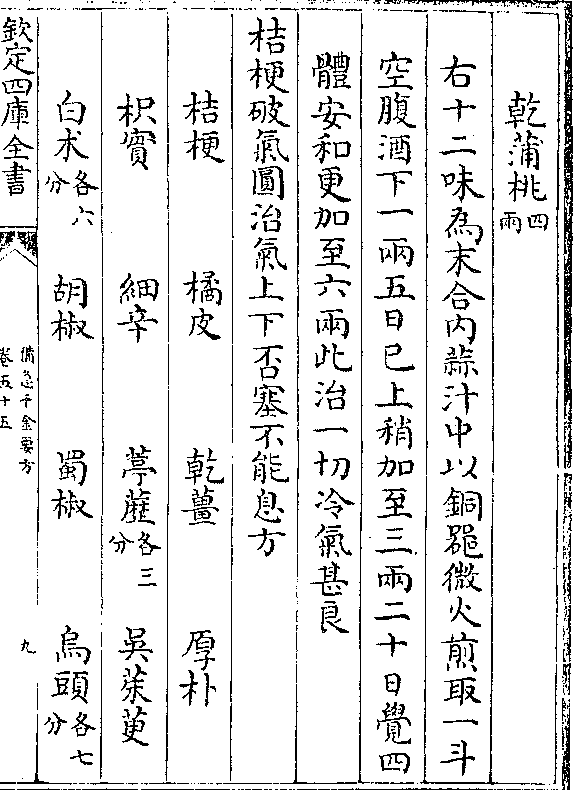 乾蒲桃四兩
右十二味為末合内蒜汁中以銅器微火煎取一斗
空腹酒下一兩五日已上稍加至三兩二十日覺四
體安和更加至六兩此治一切冷氣甚良
桔梗破氣圓治氣上下否塞不能息方
桔梗 橘皮 乾薑 厚朴
枳實 細辛 葶藶各三分 吳茱萸
白术各六分 胡椒 蜀椒 烏頭各七分
欽定四庫全書
備急千金要方
卷五十五
九